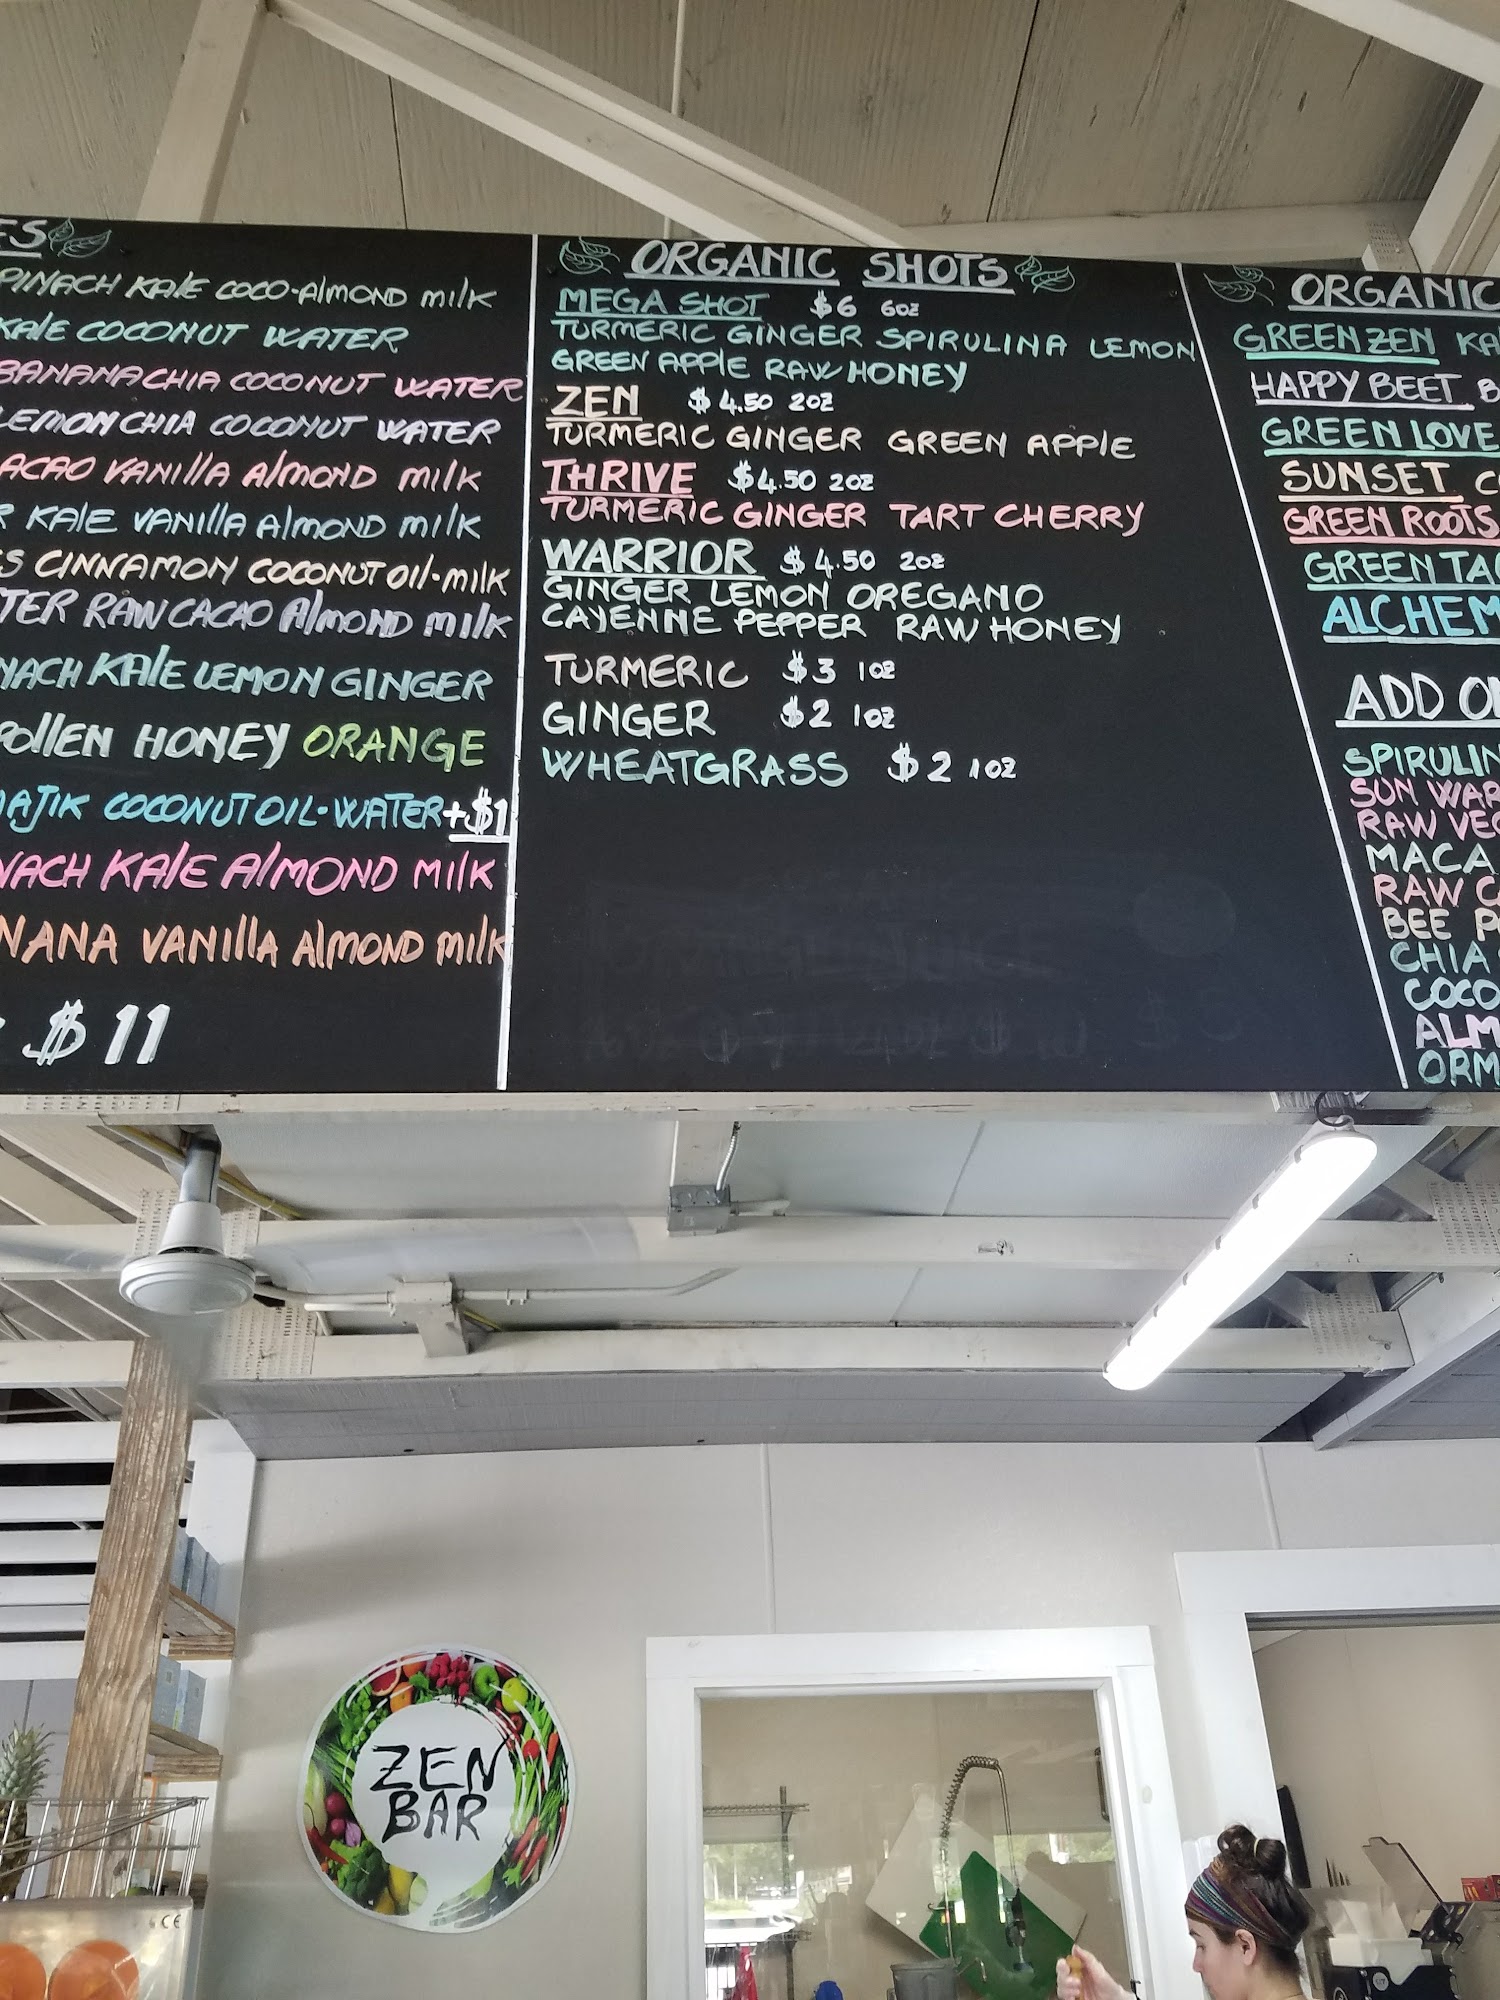 PINACH KALE COCO-ALMOND MILK
KALE COCONUT WATER
BANANA CHIA COCONUT WATER
LEMON CHIA COCONUT WATER
ACAO VANILLA ALMOND MILK
R KALE VANILLA ALMOND MILK
S CINNAMON COCONUT OIL-MILK
TER RAW CACAO ALMOND MILK
NACH KALE LEMON GINGER
POLLEN HONEY ORANGE
MAJIK COCONUT OIL-WATER +$1
NACH KALE ALMOND MILK
NANA VANILLA ALMOND MILK
$11
ORGANIC SHOTS
MEGA SHOT $6 6OZ
TURMERIC GINGER SPIRULINA LEMON
GREEN APPLE RAW HONEY
ZEN $4.50 2OZ
TURMERIC GINGER GREEN APPLE
THRIVE $4.50 2OZ
TURMERIC GINGER TART CHERRY
WARRIOR $4.50 2OZ
GINGER LEMON OREGANO
CAYENNE PEPPER RAW HONEY
TURMERIC $3 1OZ
GINGER $2 1OZ
WHEATGRASS $2 1OZ
ORGANIC
GREEN ZEN KA
HAPPY BEET B
GREEN LOVE
SUNSET C
GREEN ROOTS
GREEN TA
ALCHEM
ADD O
SPIRULIN
SUN WAR
RAW VEG
MACA
RAW C
BEE P
CHIA
COCO
ALM
ORM
ZEN
BAR
CE